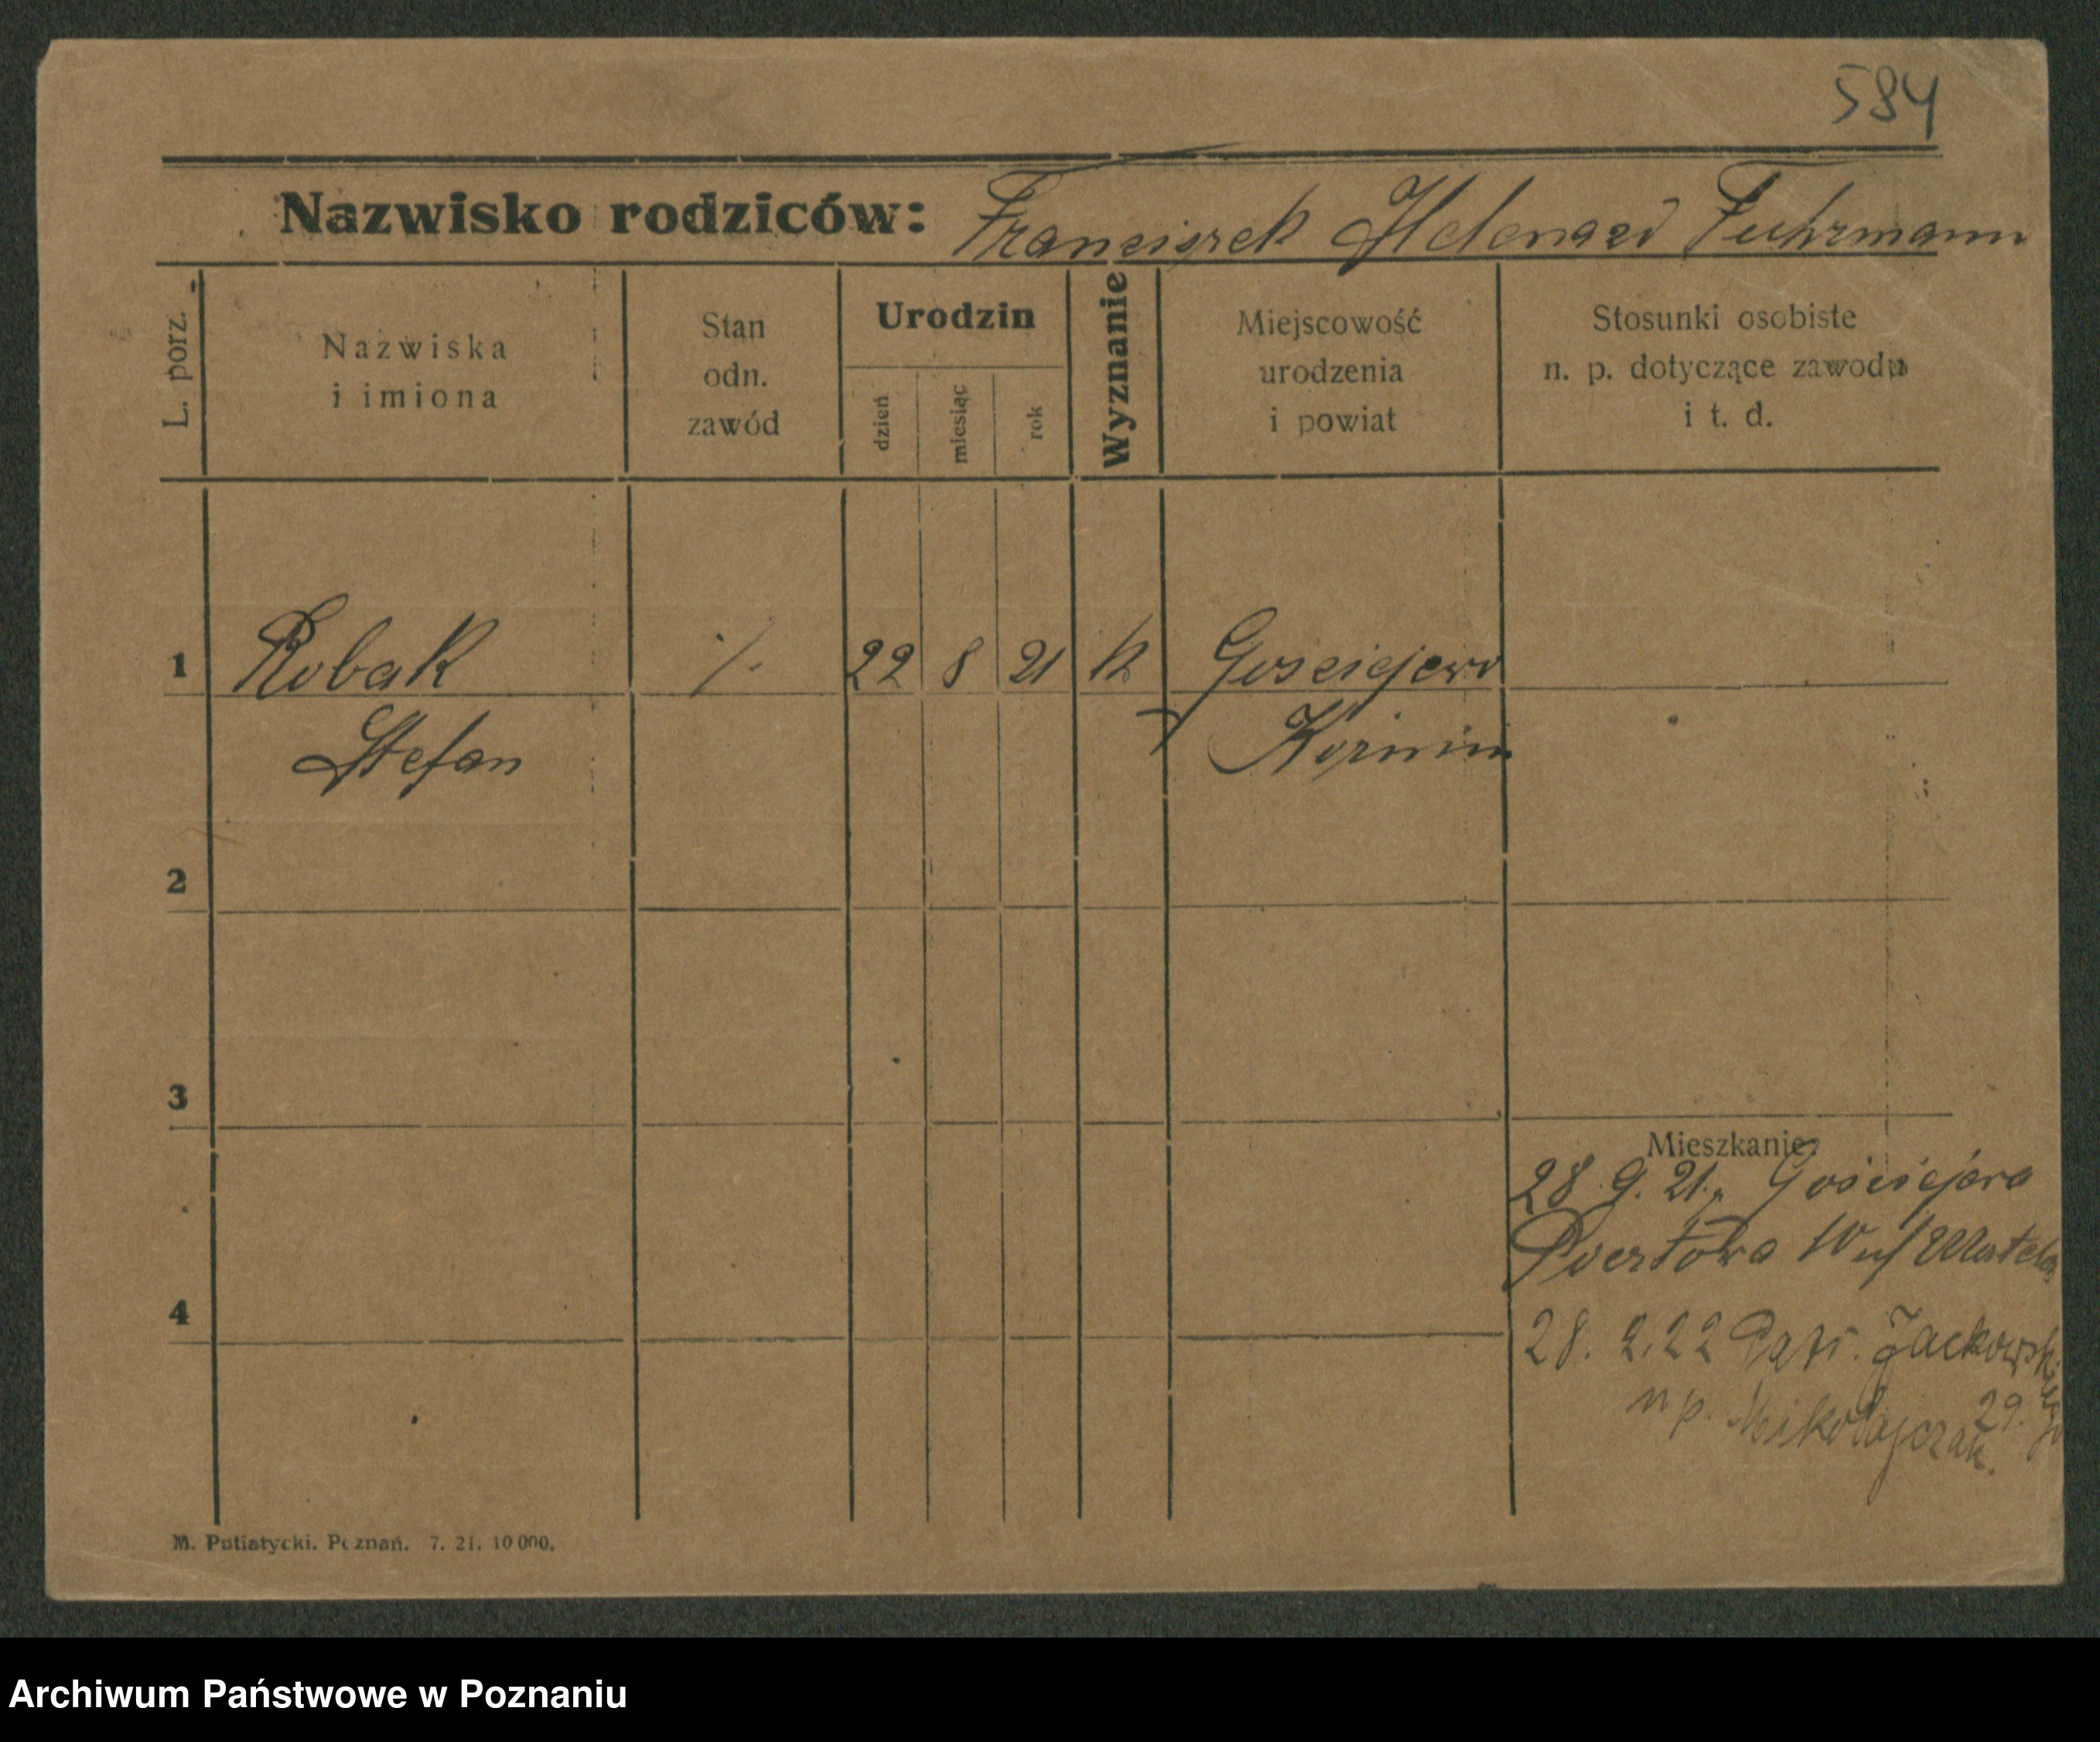 584
Nazwisko rodziców: Franciszek Helena zd Fuhrmann
L. porz.
Nazwiska
i imiona
Stan
odn.
zawód
Urodzin
dzień
miesiąc
rok
Wyznanie
Miejscowość
urodzenia
i powiat
Stosunki osobiste
n. p. dotyczące zawodu
i t. d.
1 Robak % 22 8 21 k Gosciejewo
Stefan
2
3
Mieszkanie:
28. 9. 21.
4
28. 2. 22 Patr. Jackowskiego
29.
n p. Mikołajczak.
M. Putiatycki. Poznań. 7. 21. 10 000.
Archiwum Państwowe w Poznaniu